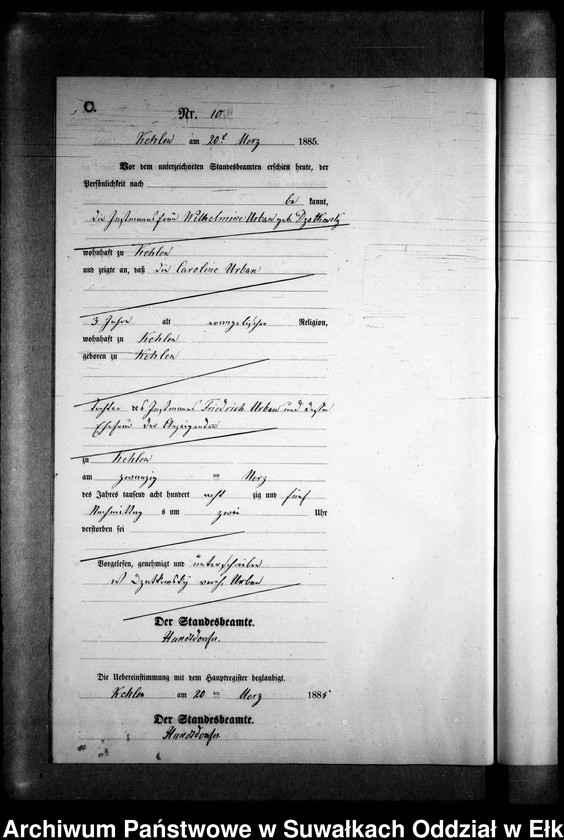 C.
Nr. 10
Kehlen am 20t März 1885.
Vor dem unterzeichneten Standesbeamten erschien heute, der
Persönlichkeit nach
be kannt,
die Instmannsfrau Wilhelmine Urban geb.
wohnhaft zu Kehlen
und zeigte an, daß die Caroline Urban
3 Jahre alt evangelischer Religion,
wohnhaft zu Kehlen
geboren zu Kehlen
Tochter des Instmanns Friedrich Urban und dessen
Ehefrau der Anzeigenden
zu Kehlen
am zwanzig ten März
des Jahres tausend acht hundert acht zig und fünf
Nachmittag s um zwei Uhr
verstorben sei
Vorgelesen, genehmigt und unterschrieben
Urban
Der Standesbeamte.
Die Uebereinstimmung mit dem Hauptregister beglaubigt.
Kehlen am 20 ten März 1885
Der Standesbeamte.
Archiwum Państwowe w Suwałkach Oddział w Ełk